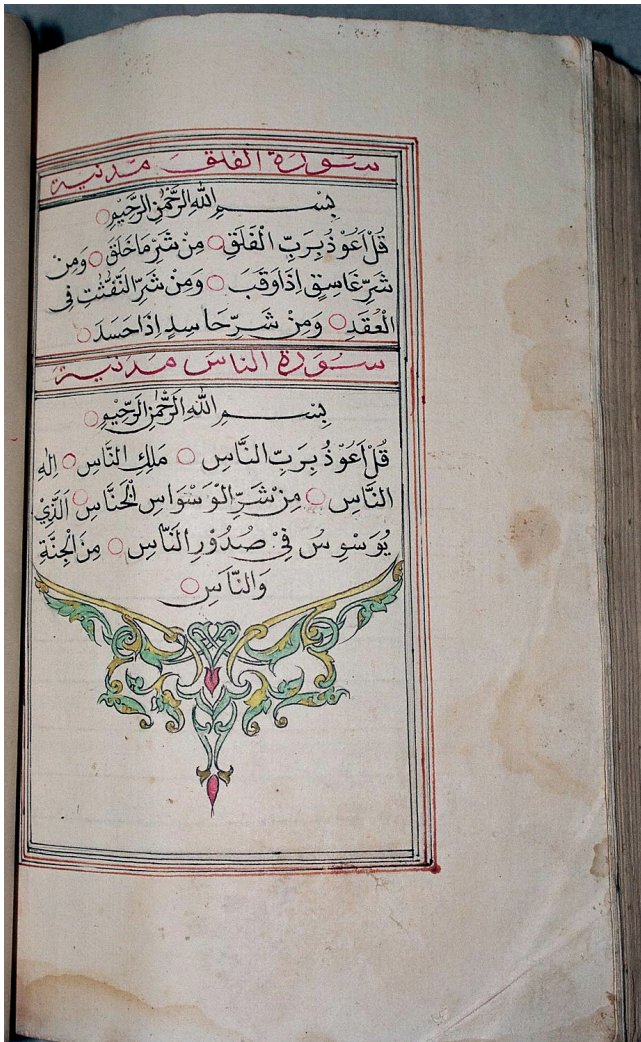 سورة الفلق مدنية
بِسْمِ اللهِ الرَّحْمٰنِ الرَّحِيْمِ
قُلْ اَعُوْذُ بِرَبِّ الْفَلَقِ ○ مِنْ شَرِّ مَا خَلَقَ ○ وَمِنْ
شَرِّ غَاسِقٍ اِذَا وَقَبَ ○ وَمِنْ شَرِّ النَّفّٰثٰتِ فِى
الْعُقَدِ ○ وَمِنْ شَرِّ حَاسِدٍ اِذَا حَسَدَ ○
سورة الناس مدنية
بِسْمِ اللهِ الرَّحْمٰنِ الرَّحِيْمِ ○
قُلْ اَعُوْذُ بِرَبِّ النَّاسِ ○ مَلِكِ النَّاسِ ○ اِلٰهِ
النَّاسِ ○ مِنْ شَرِّ الْوَسْوَاسِ الْخَنَّاسِ ○ الَّذِيْ
يُوَسْوِسُ فِيْ صُدُوْرِ النَّاسِ ○ مِنَ الْجِنَّةِ
وَالنَّاسِ ○